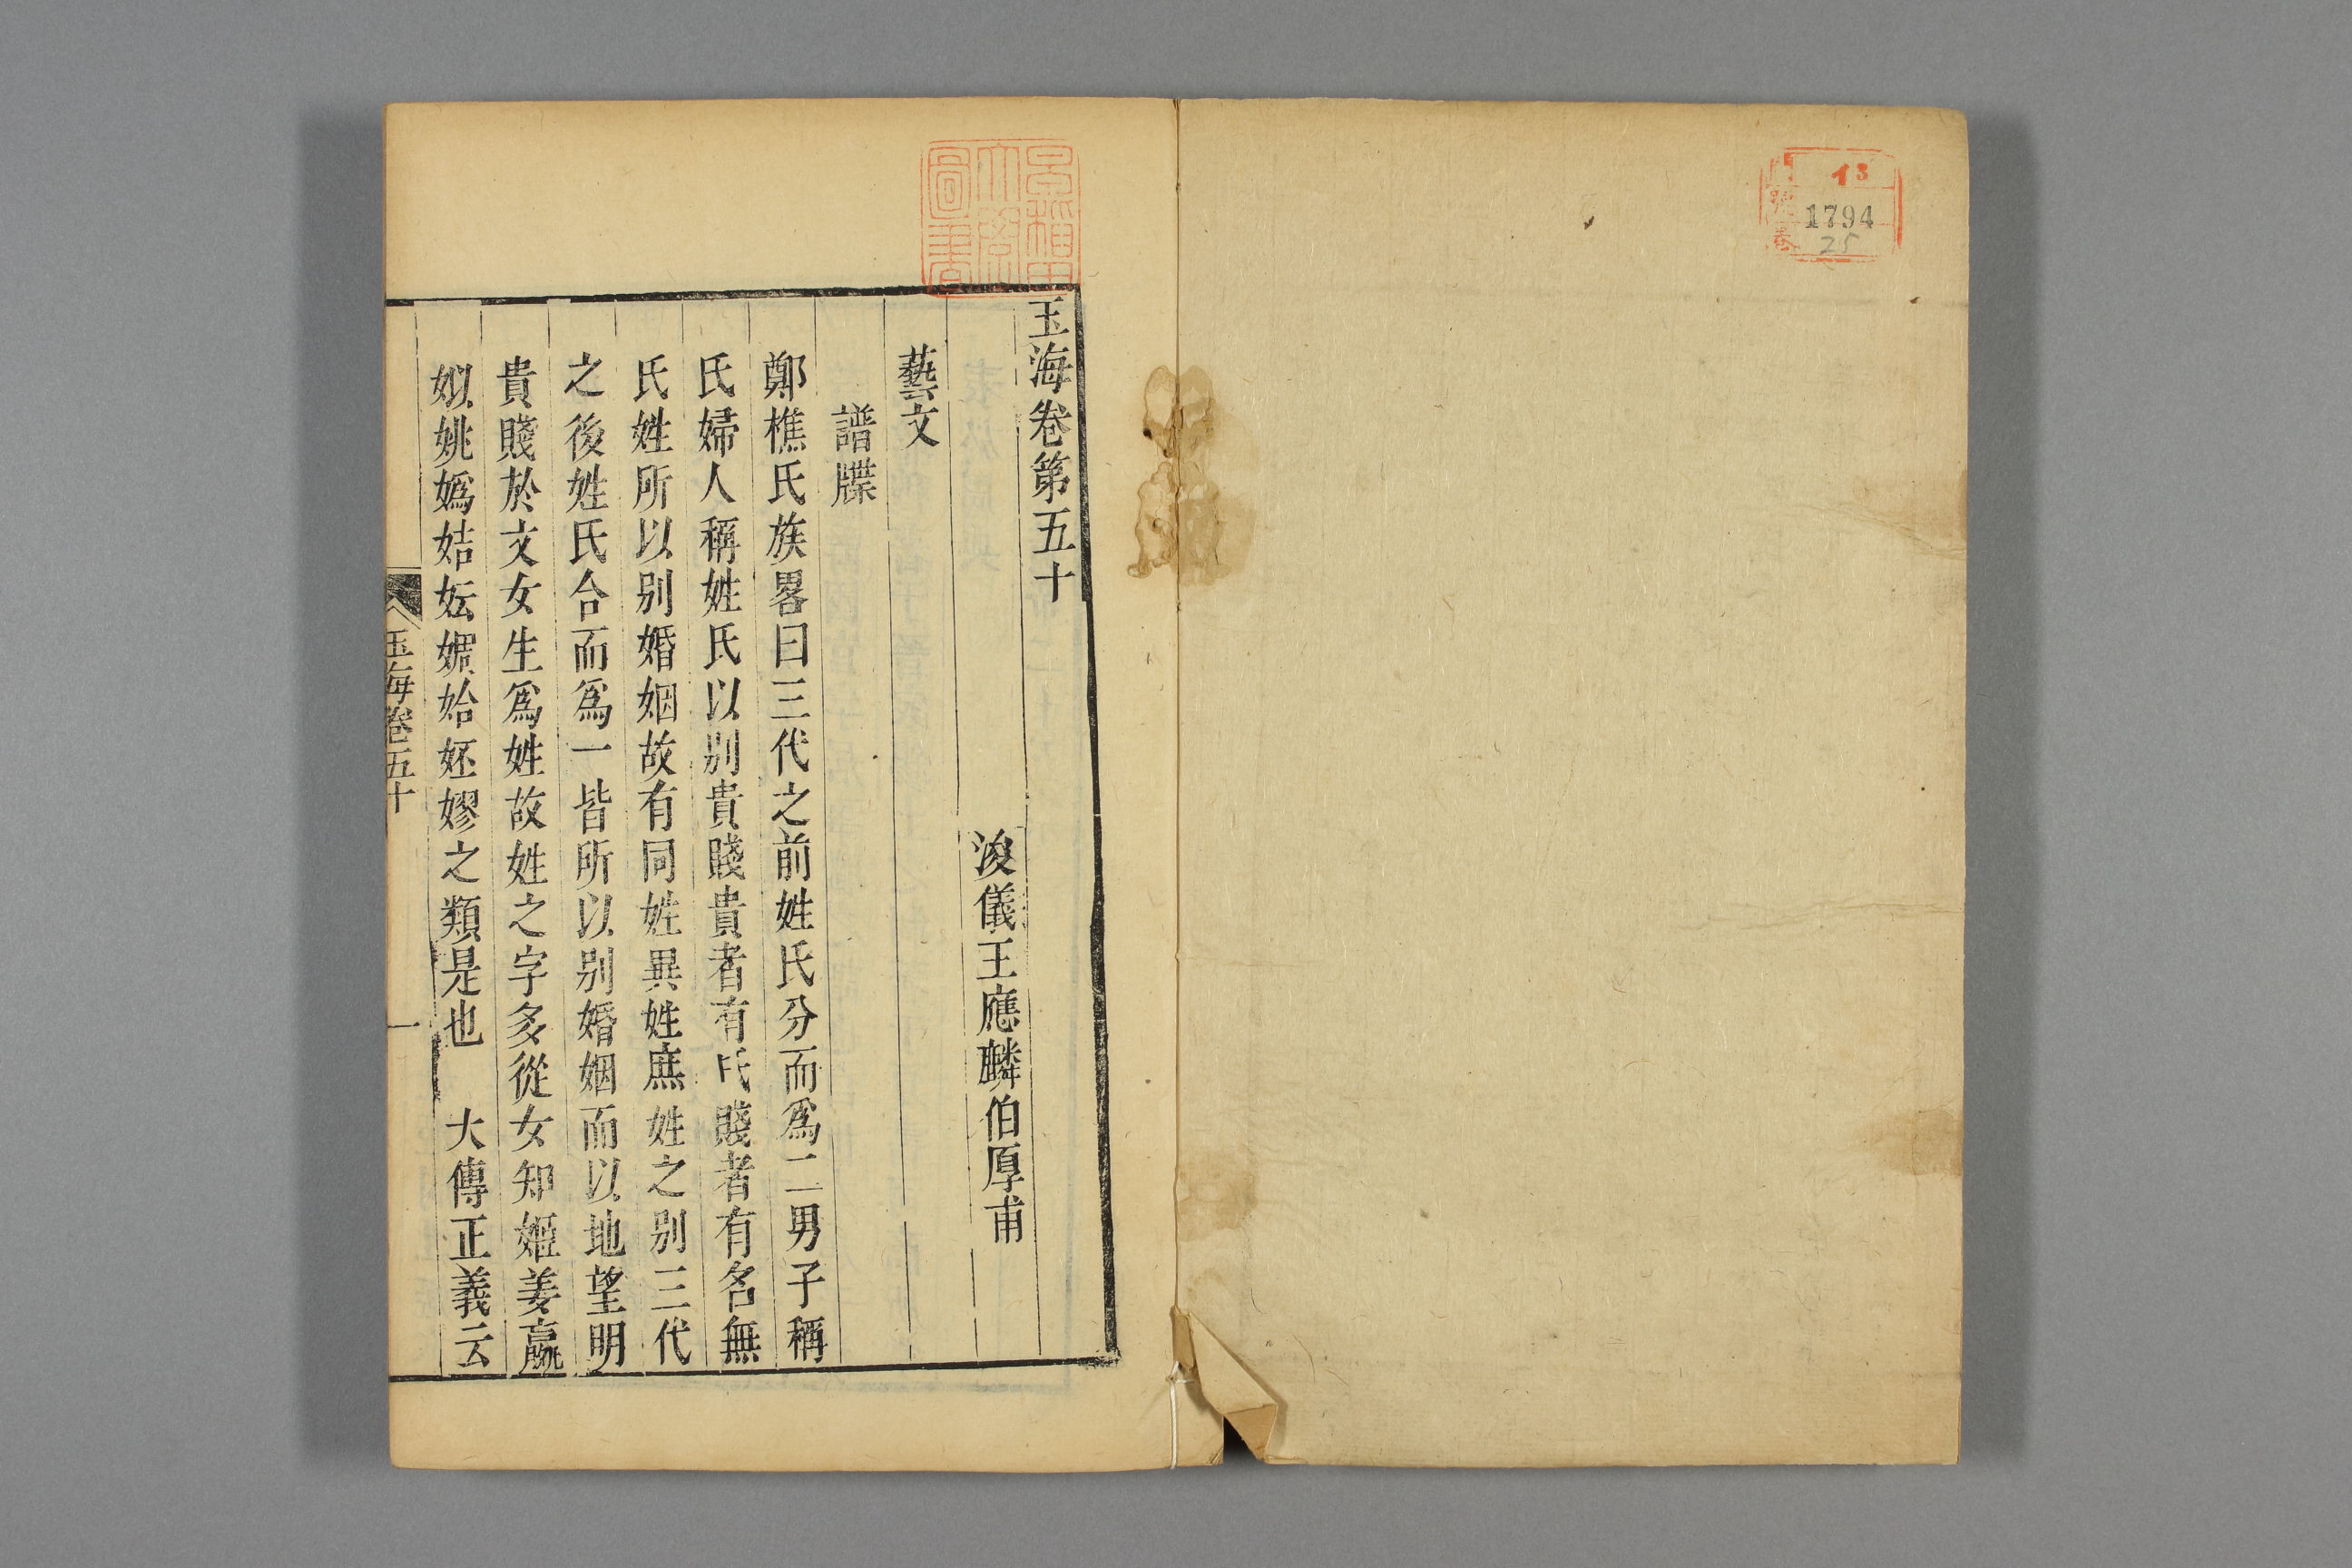 13
1794
25
早稲田
大學
圖書
玉海卷第五十
浚儀王應麟伯厚甫
藝文
譜牒
鄭樵氏族畧曰三代之前姓氏分而爲二男子稱
氏婦人稱姓氏以别貴賤貴者有氏賤者有名無
氏姓所以别婚姻故有同姓異姓庶姓之别三代
之後姓氏合而爲一皆所以别婚姻而以地望明
貴賤於文女生爲姓故姓之字多從女知姬姜嬴
姒姚嬀姞妘媿姶妚嫪之類是也　大傳正義云
玉海卷五十
一